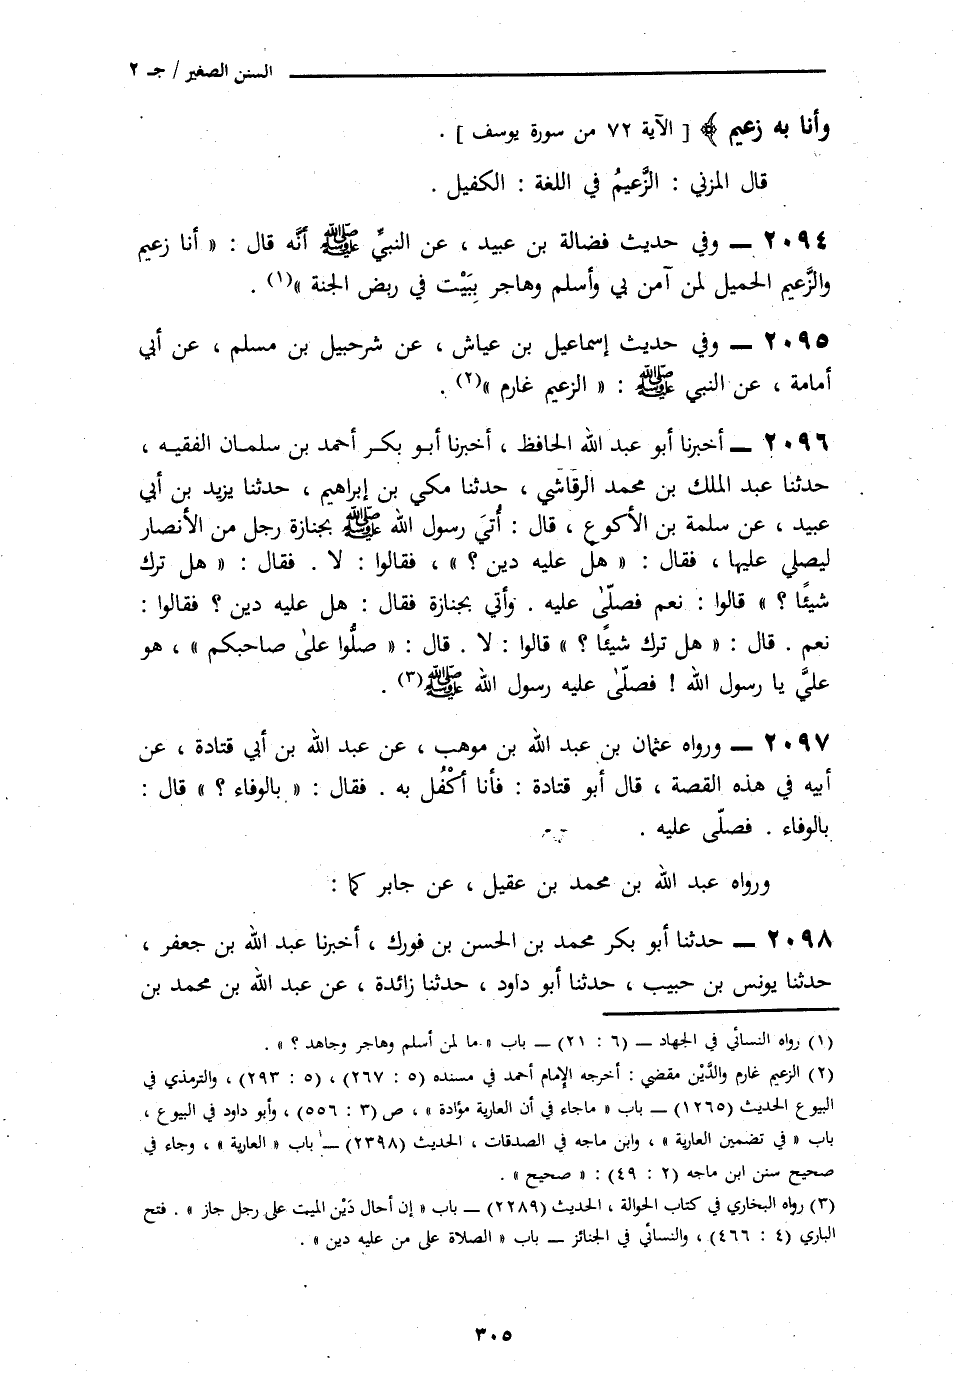 السنن الصغير / جـ ٢
وأنا به زعيم ﴾ [ الآية ٧٢ من سورة يوسف ] .
قال المزني : الزَّعيمُ في اللغة : الكفيل .
٢٠٩٤ ــ وفي حديث فضالة بن عبيد ، عن النبيِّ ﷺ أنَّه قال : « أنا زعيم
والزَّعيم الحميل لمن آمن بي وأسلم وهاجر بِبَيْت في ربض الجنة »(١) .
٢٠٩٥ ــ وفي حديث إسماعيل بن عياش ، عن شرحبيل بن مسلم ، عن أبي
أمامة ، عن النبي ﷺ : « الزعيم غارم »(٢) .
٢٠٩٦ ــ أخبرنا أبو عبد الله الحافظ ، أخبرنا أبو بكر أحمد بن سلمان الفقيه ،
حدثنا عبد الملك بن محمد الرقاشي ، حدثنا مكي بن إبراهيم ، حدثنا يزيد بن أبي
عبيد ، عن سلمة بن الأكوع ، قال : أُتيَ رسول الله ﷺ بجنازة رجل من الأنصار
ليصلي عليها ، فقال : « هل عليه دين ؟ » ، فقالوا : لا . فقال : « هل ترك
شيئًا ؟ » قالوا : نعم فصلّى عليه . وأتي بجنازة فقال : هل عليه دين ؟ فقالوا :
نعم . قال : « هل ترك شيئًا ؟ » قالوا : لا . قال : « صلُّوا على صاحبكم » ، هو
عليَّ يا رسول الله ! فصلّى عليه رسول الله ﷺ(٣) .
٢٠٩٧ ــ ورواه عثمان بن عبد الله بن موهب ، عن عبد الله بن أبي قتادة ، عن
أبيه في هذه القصة ، قال أبو قتادة : فأنا أكْفُل به . فقال : « بالوفاء ؟ » قال :
بالوفاء . فصلّى عليه .
ورواه عبد الله بن محمد بن عقيل ، عن جابر كما :
٢٠٩٨ ــ حدثنا أبو بكر محمد بن الحسن بن فورك ، أخبرنا عبد الله بن جعفر ،
حدثنا يونس بن حبيب ، حدثنا أبو داود ، حدثنا زائدة ، عن عبد الله بن محمد بن
(١) رواه النسائي في الجهاد ــ (٦ : ٢١) ــ باب « ما لمن أسلم وهاجر وجاهد ؟ » .
(٢) الزعيم غارم والدَّيْن مقضي : أخرجه الإمام أحمد في مسنده (٥ : ٢٦٧) ، (٥ : ٢٩٣) ، والترمذي في
البيوع الحديث (١٢٦٥) ــ باب « ماجاء في أن العارية مؤادة » ، ص (٣ : ٥٥٦) ، وأبو داود في البيوع ،
باب « في تضمين العارية » ، وابن ماجه في الصدقات ، الحديث (٢٣٩٨) ــ باب « العارية » ، وجاء في
صحيح سنن ابن ماجه (٢ : ٤٩) : « صحيح » .
(٣) رواه البخاري في كتاب الحوالة ، الحديث (٢٢٨٩) ــ باب « إن أحال دَيْن الميت على رجل جاز » . فتح
الباري (٤ : ٤٦٦) ، والنسائي في الجنائز ــ باب « الصلاة على من عليه دين » .
٣٠٥